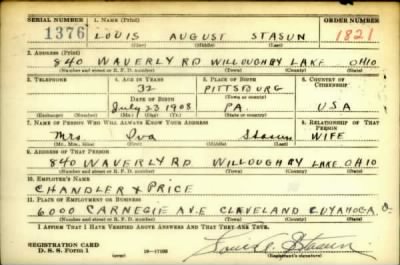 SERIAL NUMBER 1. NAME (Print) ORDER NUMBER
1376 LOUIS AUGUST STASUN 1821
(First) (Middle) (Last)
2. ADDRESS (Print)
840 WAVERLY RD WILLOUGHBY LAKE OHIO
(Number and street or R. F. D. number) (Town) (County) (State)
3. TELEPHONE 4. AGE IN YEARS 5. PLACE OF BIRTH 6. COUNTRY OF CITIZENSHIP
32 PITTSBURG
DATE OF BIRTH (Town or county)
July 23 1908 PA. USA
(Exchange) (Number) (Mo.) (Day) (Yr.) (State or country)
7. NAME OF PERSON WHO WILL ALWAYS KNOW YOUR ADDRESS 8. RELATIONSHIP OF THAT PERSON
Mrs Iva Stasun WIFE
(Mr., Mrs., Miss) (First) (Middle) (Last)
9. ADDRESS OF THAT PERSON
840 WAVERLY RD WILLOUGHBY LAKE. OHIO
(Number and street or R. F. D. number) (Town) (County) (State)
10. EMPLOYER'S NAME
CHANDLER & PRICE
11. PLACE OF EMPLOYMENT OR BUSINESS
6000 CARNEGIE AVE CLEVELAND CUYAHOGA O-
(Number and street or R. F. D. number) (Town) (County) (State)
I AFFIRM THAT I HAVE VERIFIED ABOVE ANSWERS AND THAT THEY ARE TRUE.
REGISTRATION CARD
D. S. S. Form 1 Louis A. Stasun
(Registrant's signature)